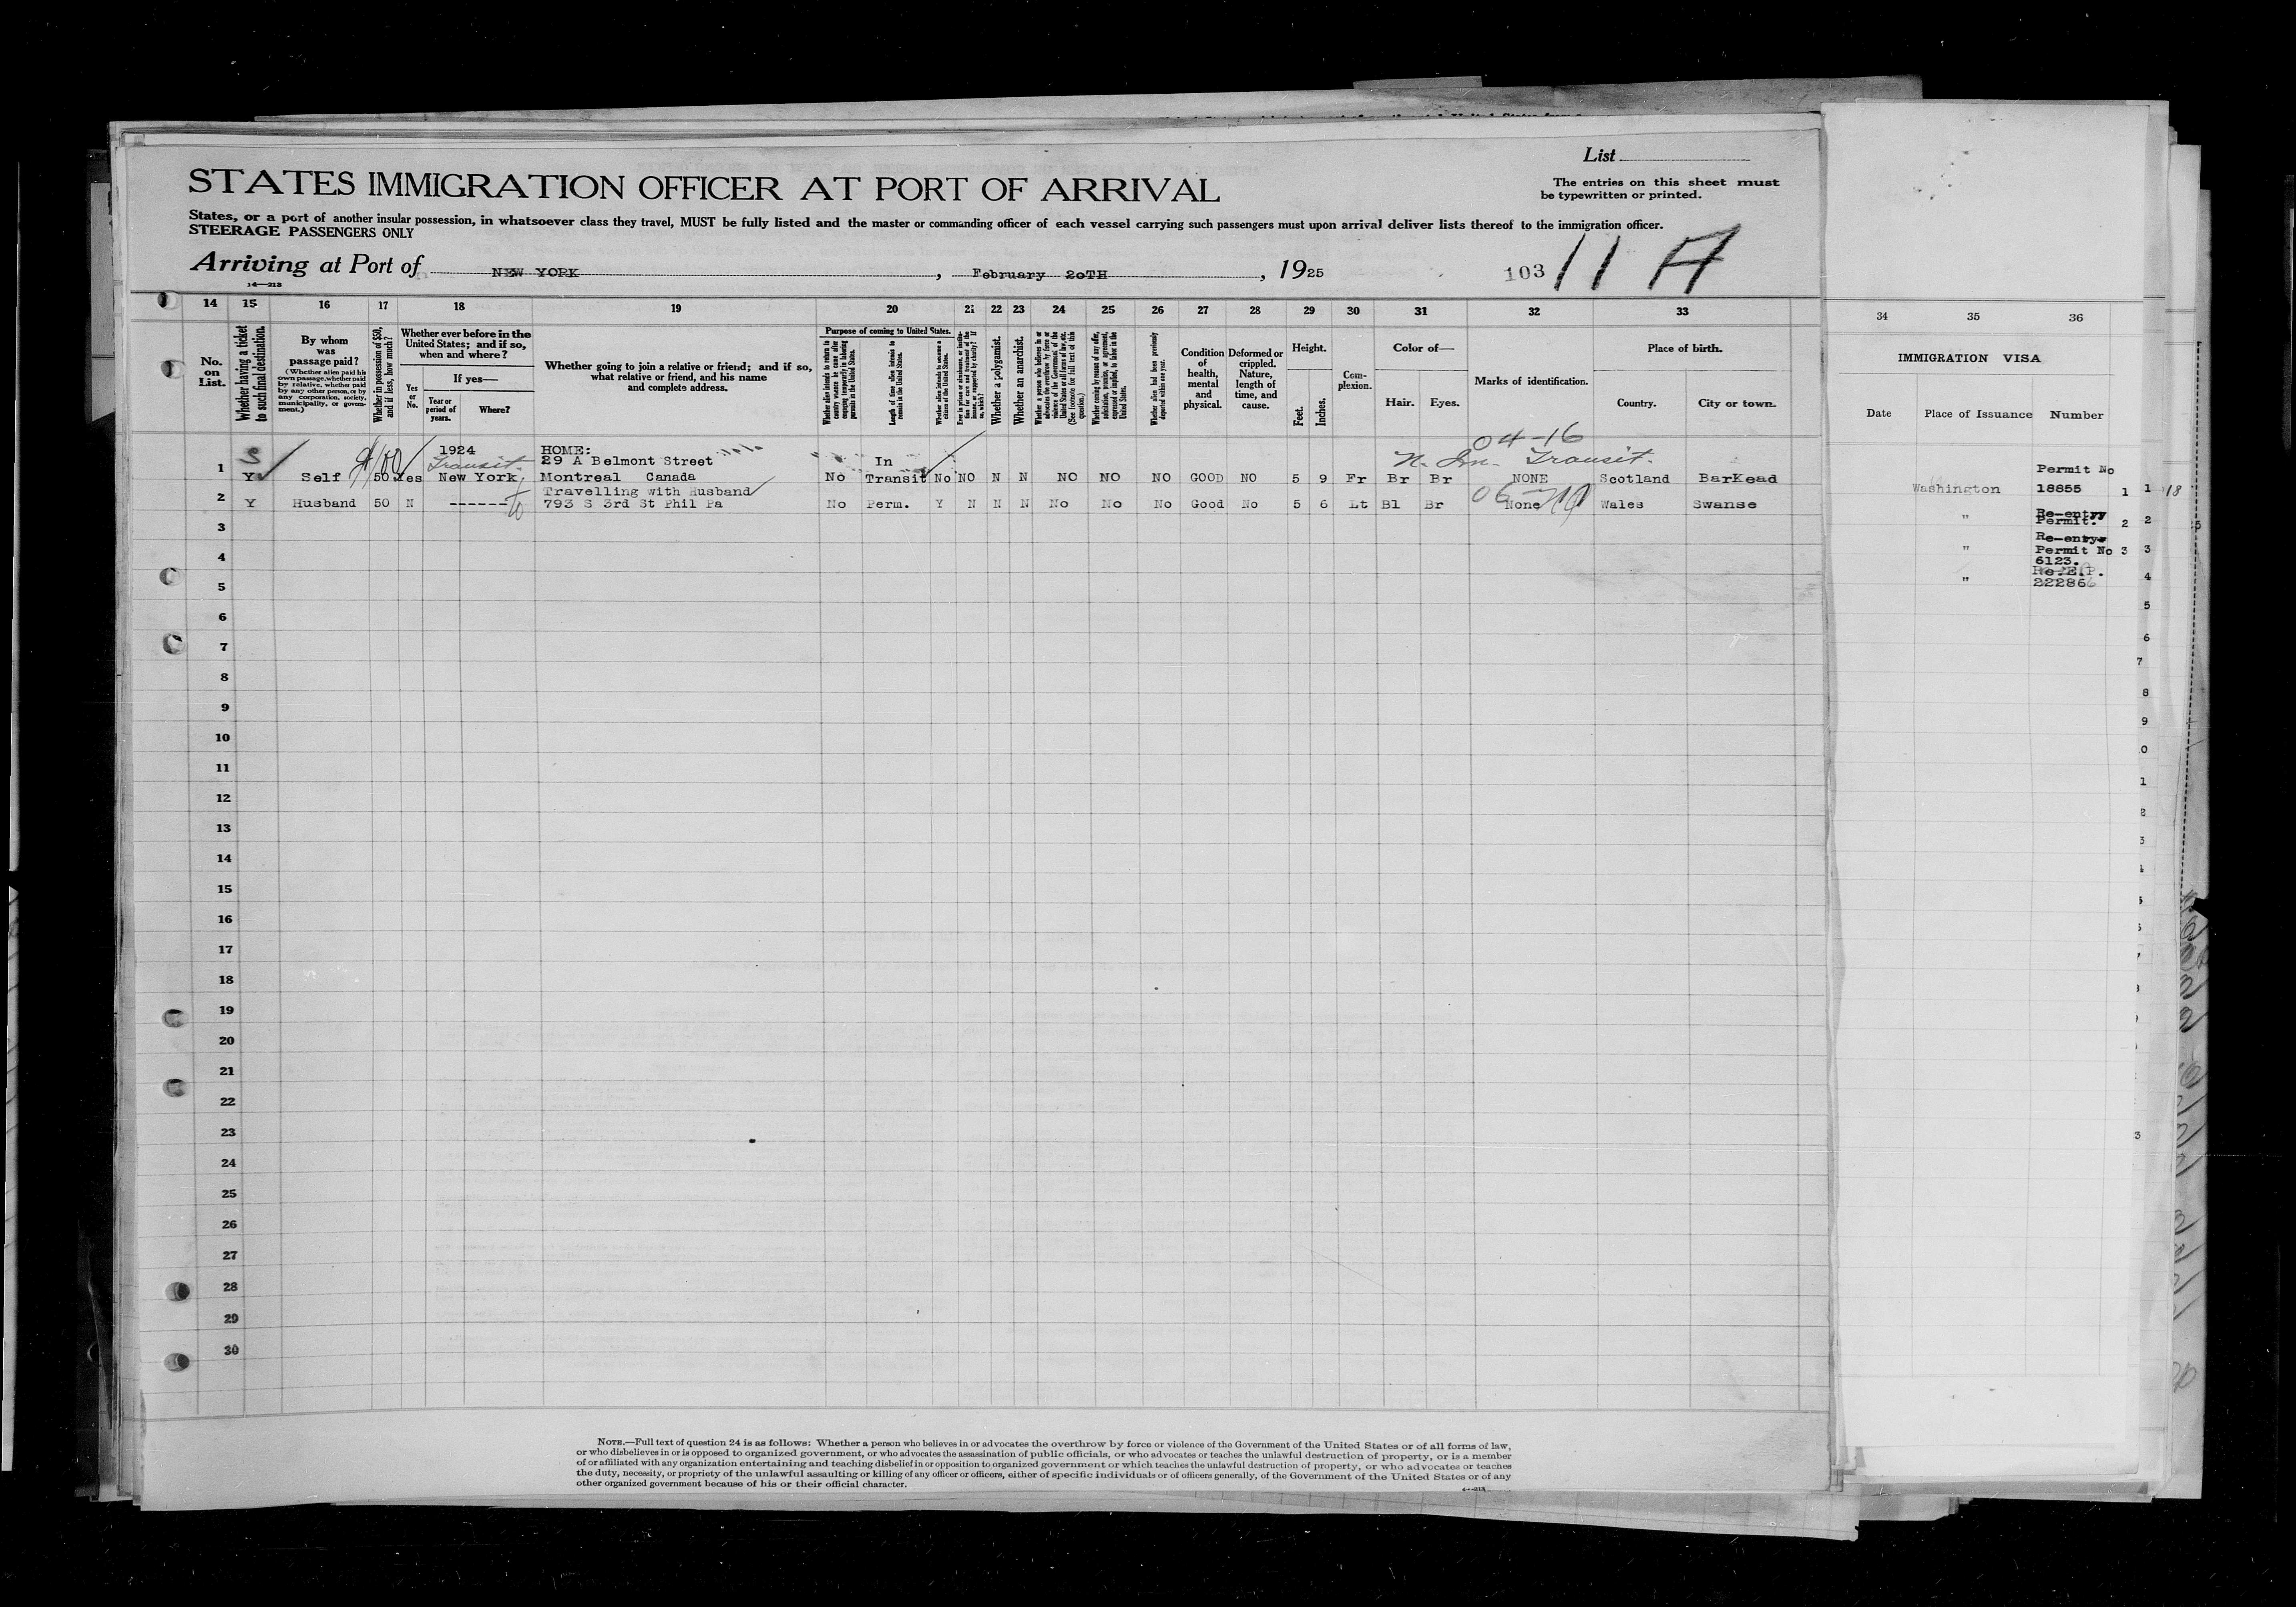 List
STATES IMMIGRATION OFFICER AT PORT OF ARRIVAL
The entries on this sheet must
be typewritten or printed.
States, or a port of another insular possession, in whatsoever class they travel, MUST be fully listed and the master or commanding officer of each vessel carrying such passengers must upon arrival deliver lists thereof to the immigration officer.
STEERAGE PASSENGERS ONLY
Arriving at Port of NEW YORK, February 20TH, 1925
103 11 A
14—213
14 15 16 17 18 19 20 21 22 23 24 25 26 27 28 29 30 31 32 33
34 35 36
No. on List.
Whether having a ticket to such final destination.
By whom was passage paid?
(Whether alien paid his own passage, whether paid by relative, whether paid by any other person, or by any corporation, society, municipality, or government.)
Whether in possession of $50, and if less, how much?
Whether ever before in the United States; and if so, when and where?
Yes or No.
If yes—
Year or period of years.
Where?
Whether going to join a relative or friend; and if so, what relative or friend, and his name and complete address.
Purpose of coming to United States.
Whether alien intends to return to country whence he came after engaging temporarily in laboring pursuits in the United States.
Length of time alien intends to remain in the United States.
Whether alien intends to become a citizen of the United States.
Whether a polygamist.
Whether an anarchist.
Whether alien had been previously deported within one year.
Condition of health, mental and physical.
Deformed or crippled. Nature, length of time, and cause.
Height.
Feet.
Inches.
Complexion.
Color of—
Hair.
Eyes.
Marks of identification.
Place of birth.
Country.
City or town.
IMMIGRATION VISA
Date Place of Issuance Number
S 1924 HOME: 04-16
1 Transit 29 A Belmont Street In Transit.
Y Self 50 Yes New York Montreal Canada No Transit No NO N N NO NO NO GOOD NO 5 9 Fr Br Br NONE Scotland BarKead
2 Travelling with Husband
Y Husband 50 N ------ 793 S 3rd St Phil Pa No Perm. Y N N N No No No Good No 5 6 Lt Bl Br None Wales Swanse
Permit No
Washington 18855 1 1 18
" Re-entry
Permit. 2 2
Re-entry
" Permit No 3 3
6123.
Re.E.P.
" 222866 4
3
4
5
6
7
8
9
10
11
12
13
14
15
16
17
18
19
20
21
22
23
24
25
26
27
28
29
30
5
6
7
8
9
NOTE.—Full text of question 24 is as follows: Whether a person who believes in or advocates the overthrow by force or violence of the Government of the United States or of all forms of law,
or who disbelieves in or is opposed to organized government, or who advocates the assassination of public officials, or who advocates or teaches the unlawful destruction of property, or is a member
of or affiliated with any organization entertaining and teaching disbelief in or opposition to organized government or which teaches the unlawful destruction of property, or who advocates or teaches
the duty, necessity, or propriety of the unlawful assaulting or killing of any officer or officers, either of specific individuals or of officers generally, of the Government of the United States or of any
other organized government because of his or their official character.